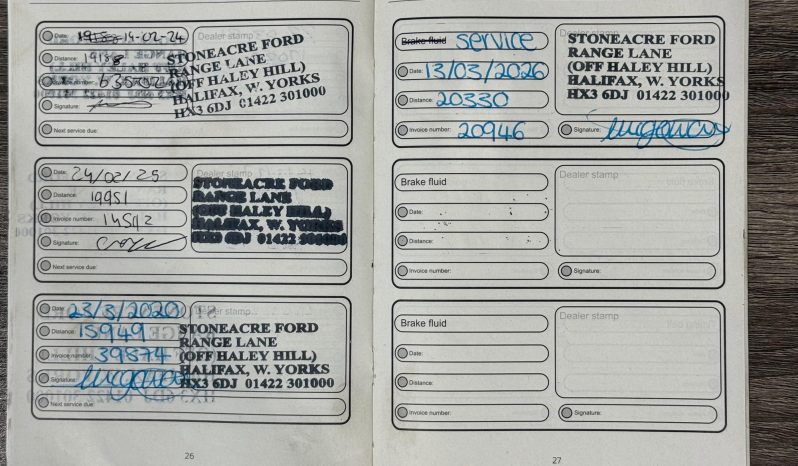 Date: 19-02-24
Dealer stamp
Distance: 19188
Signature:
Next service due:
STONEACRE FORD
RANGE LANE
(OFF HALEY HILL)
HALIFAX, W. YORKS
HX3 6DJ 01422 301000
Date: 24/02/25
Dealer stamp
Distance: 19951
Invoice number: 14592
Signature:
Next service due:
STONEACRE FORD
RANGE LANE
(OFF HALEY HILL)
HALIFAX, W. YORKS
HX3 6DJ 01422 301000
Date: 23/3/2020
Dealer stamp
Distance: 15949
Invoice number: 39874
Signature:
Next service due:
STONEACRE FORD
RANGE LANE
(OFF HALEY HILL)
HALIFAX, W. YORKS
HX3 6DJ 01422 301000
26
Brake fluid service
Date: 13/03/2026
Distance: 20330
Invoice number: 20946
STONEACRE FORD
RANGE LANE
(OFF HALEY HILL)
HALIFAX, W. YORKS
HX3 6DJ 01422 301000
Signature:
Brake fluid
Dealer stamp
Date:
Distance:
Invoice number:
Signature:
Brake fluid
Dealer stamp
Date:
Distance:
Invoice number:
Signature:
27